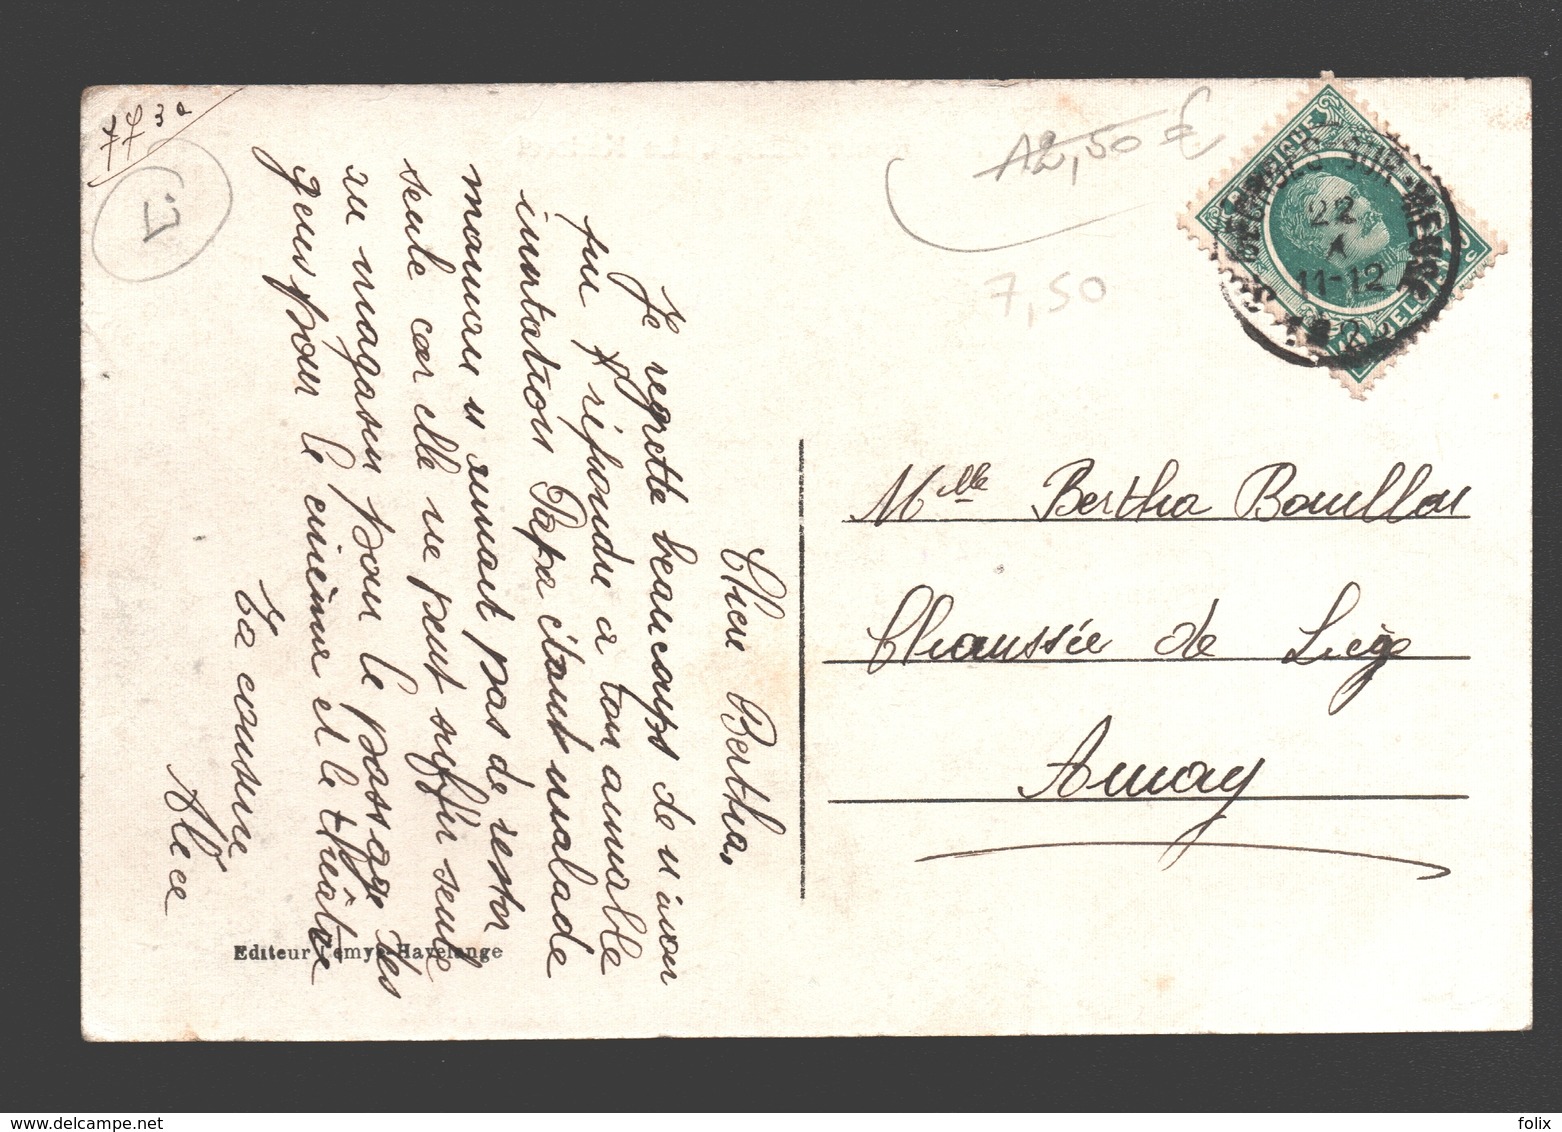 7730
L.J
12,50 €
7,50
Chère Bertha,
Je regrette beaucoup de n'avoir
pu répondre à ton aimable
invitation Papa étant malade
maman n'aimait pas de rester
seule car elle ne peut suffir seule
au magasin pour le passage des
gens pour le cinéma et le théâtre
Ta cousine
Alice
Editeur Lemye-Havelange
SUR-MEUSE
22
X
11-12
BELGIQUE
Mlle Bertha Bouillon
Chaussée de Liège
Amay
folix